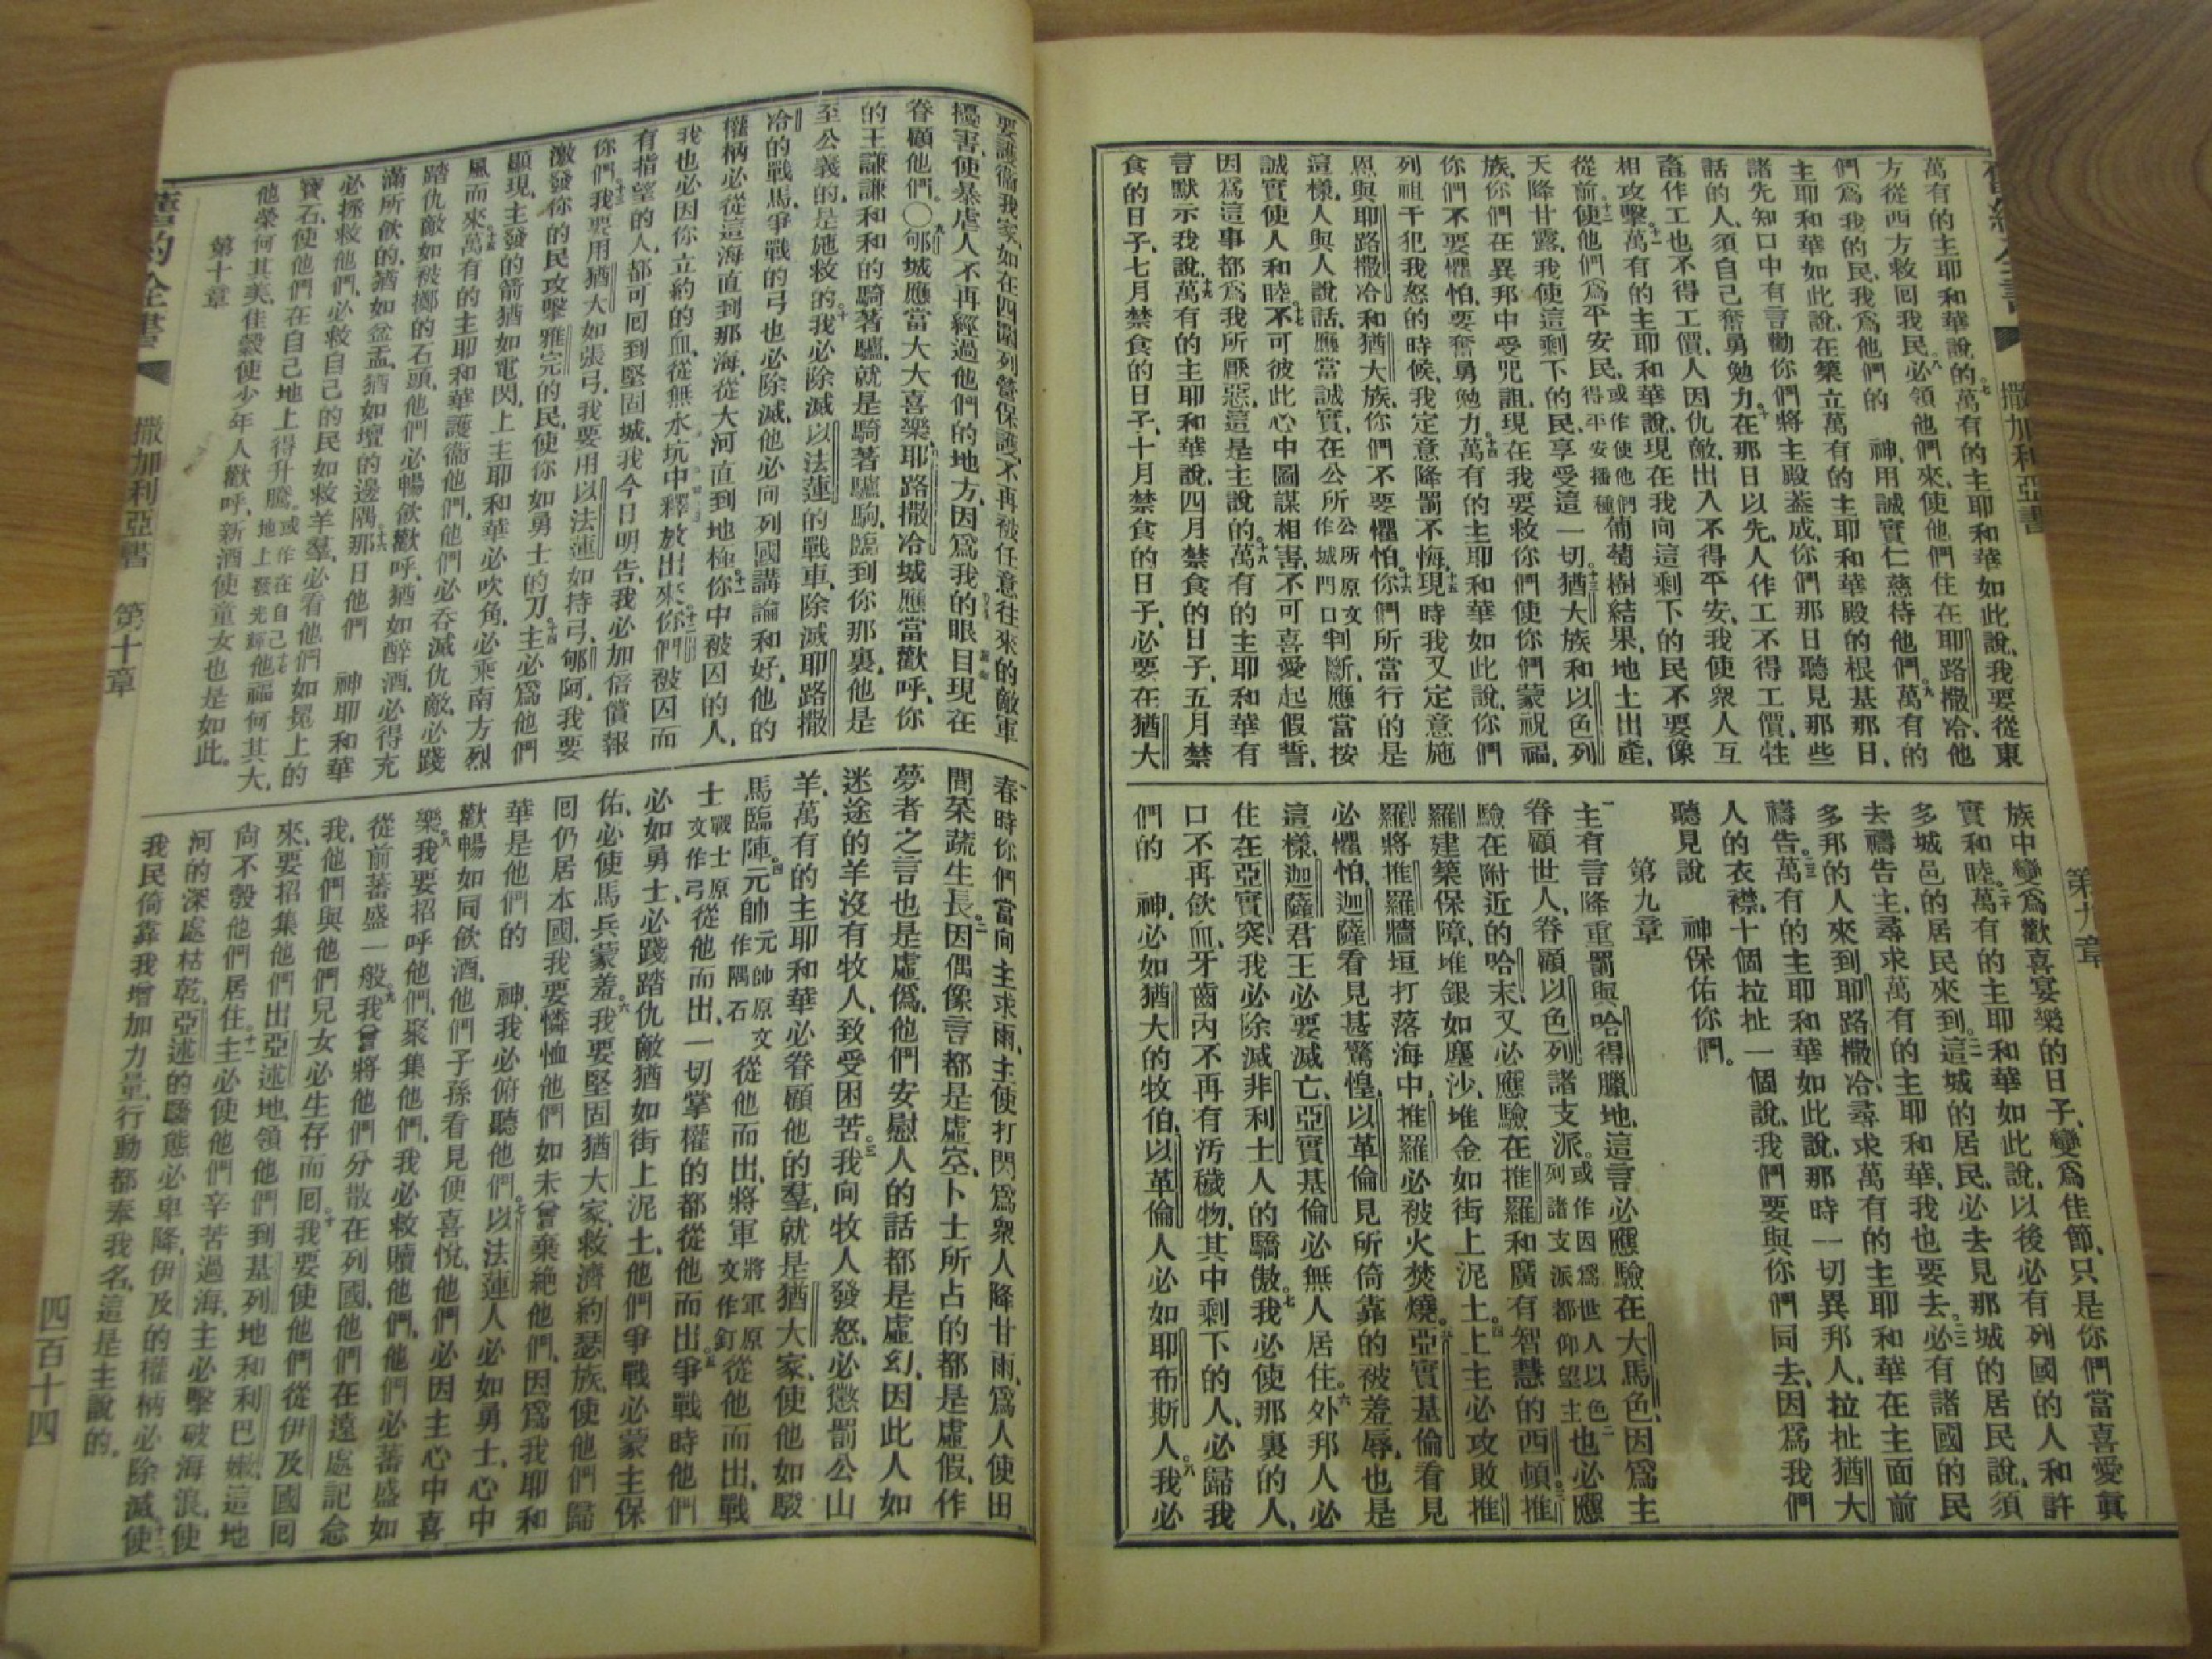 萬有的主耶和華說的七萬有的主耶和華如此說、我要從東
方從西方救回我民、八必領他們來、使他們住在耶路撒冷、他
們爲我的民、我爲他們的　神、用誠實仁慈待他們、九萬有的
主耶和華如此說、在築立萬有的主耶和華殿的根基那日、
諸先知口中有言勸你們將主殿蓋成、你們那日聽見那些
話的人、須自己奮勇勉力、十在那日以先、人作工不得工價、牲
畜作工也不得工價、人因仇敵、出入不得平安、我使衆人互
相攻擊、十一萬有的主耶和華說、現在我向這剩下的民不要像
從前、十二使他們爲平安民、或作使他們得平安播種葡萄樹結果、地土出產、
天降甘露、我使這剩下的民、享受這一切。十三猶大族和以色列
族、你們在異邦中受咒詛、現在我要救你們使你們蒙祝福、
你們不要懼怕、要奮勇勉力、十四萬有的主耶和華如此說、你們
列祖干犯我怒的時候、我定意降罰不悔、十五現時我又定意施
恩與耶路撒冷和猶大族、你們不要懼怕、十六你們所當行的是
這樣、人與人說話、應當誠實、在公所公所原文作城門口判斷、應當按
誠實使人和睦。十七不可彼此心中圖謀相害、不可喜愛起假誓、
因爲這事都爲我所厭惡、這是主說的。十八萬有的主耶和華有
言默示我說、十九萬有的主耶和華說、四月禁食的日子、五月禁
食的日子、七月禁食的日子、十月禁食的日子、必要在猶大
第九章
族中變爲歡喜宴樂的日子、變爲佳節、只是你們當喜愛眞
實和睦。二十萬有的主耶和華如此說、以後必有列國的人和許
多城邑的居民來到。二一這城的居民、必去見那城的居民說、須
去禱告主、尋求萬有的主耶和華、我也要去。二二必有諸國的民
多邦的人來到耶路撒冷、尋求萬有的主耶和華在主面前
禱告。二三萬有的主耶和華如此說、那時一切異邦人、拉扯猶大
人的衣襟、十個拉扯一個說、我們要與你們同去、因爲我們
聽見說　神保佑你們。
第九章
一主有言降重罰與哈得臘地、這言必應驗在大馬色、因爲主
眷顧世人、眷顧以色列諸支派。或作因爲世人以色列諸支派都仰望主二也必應
驗在附近的哈末、又必應驗在推羅和廣有智慧的西頓。三推
羅建築保障、堆銀如塵沙、堆金如街上泥土。四主必攻敗推
羅、將推羅牆垣打落海中、推羅必被火焚燒。五亞實基倫看見
必懼怕、迦薩看見甚驚惶、以革倫見所倚靠的被羞辱、也是
這樣、迦薩君王必要滅亡、亞實基倫必無人居住。六外邦人必
住在亞實突、我必除滅非利士人的驕傲。七我必使那裏的人、
口不再飲血、牙齒內不再有汚穢物、其中剩下的人、必歸我
們的　神、必如猶大的牧伯、以革倫人必如耶布斯人。八我必
要護衞我家、如在四圍列營保護、不再被任意往來的敵軍
擾害、使暴虐人不再經過他們的地方、因爲我的眼目現在
眷顧他們。〇九郇城應當大大喜樂、耶路撒冷城應當歡呼、你
的王謙謙和和的騎著驢、就是騎著驢駒、臨到你那裏、他是
至公義的、是施救的。十我必除滅以法蓮的戰車、除滅耶路撒
冷的戰馬、爭戰的弓也必除滅、他必向列國講論和好、他的
權柄必從這海直到那海、從大河直到地極。十一你中被囚的人、
我也必因你立約的血、從無水坑中釋放出來。十二你們被囚而
有指望的人、都可回到堅固城、我今日明告、我必加倍償報
你們。十三我要用猶大如張弓、我要用以法蓮如持弓、郇阿、我要
激發你的民攻擊雅完的民、使你如勇士的刀。十四主必爲他們
顯現、主發的箭猶如電閃、上主耶和華必吹角、必乘南方烈
風而來。十五萬有的主耶和華護衞他們、他們必吞滅仇敵、必踐
踏仇敵如被擲的石頭、他們必暢飲歡呼、猶如醉酒、必得充
滿所飲的、猶如盆盂、猶如壇的邊隅。十六那日他們　神耶和華
必拯救他們、必救自己的民如救羊羣、必看他們如冕上的
寶石、使他們在自己地上得升騰。或作在自己地上發光輝十七他福何其大、
他榮何其美、佳穀使少年人歡呼、新酒使童女也是如此。
第十章
一春時你們當向主求雨、主使打閃爲衆人降甘雨、爲人使田
間菜蔬生長。二因偶像言都是虛空、卜士所占的都是虛假、作
夢者之言也是虛僞、他們安慰人的話都是虛幻、因此人如
迷途的羊沒有牧人、致受困苦。三我向牧人發怒、必懲罰公山
羊、萬有的主耶和華必眷顧他的羣、就是猶大家、使他如駿
馬臨陣。四元帥元帥原文作隅石從他而出、將軍將軍原文作釘從他而出、戰
士戰士原文作弓從他而出、一切掌權的都從他而出。五爭戰時他們
必如勇士、必踐踏仇敵猶如街上泥土、他們爭戰必蒙主保
佑、必使馬兵蒙羞。六我要堅固猶大家、救濟約瑟族、使他們歸
回仍居本國、我要憐恤他們、如未曾棄絕他們、因爲我耶和
華是他們的　神、我必俯聽他們。七以法蓮人必如勇士、心中
歡暢如同飲酒、他們子孫看見便喜悅、他們必因主心中喜
樂。八我要招呼他們、聚集他們、我必救贖他們、他們必蕃盛如
從前蕃盛一般。九我曾將他們分散在列國、他們在遠處記念
我、他們與他們兒女必生存而回。十我要使他們從伊及國回
來、要招集他們出亞述地、領他們到基列地和利巴嫩、這地
尙不彀他們居住。十一主必使他們辛苦過海、主必擊破海浪、使
河的深處枯乾、亞述的驕態必卑降、伊及的權柄必除滅。十二使
我民倚靠我增加力量、行動都奉我名、這是主說的。
舊約全書　撒加利亞書　第十章　四百十四